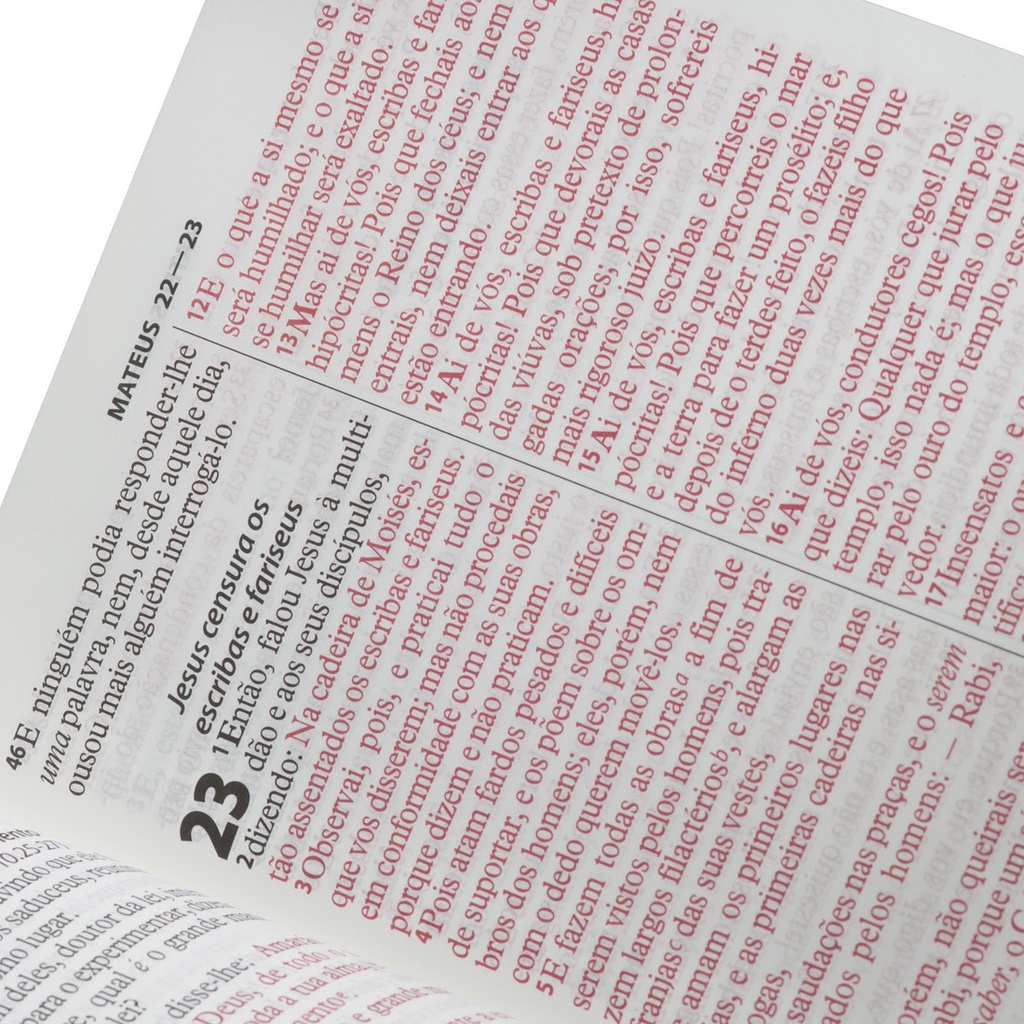 MATEUS 22—23
46 E ninguém podia responder-lhe
uma palavra, nem, desde aquele dia,
ousou mais alguém interrogá-lo.
Jesus censura os
escribas e fariseus
23 1 Então, falou Jesus à multi-
dão e aos seus discípulos,
2 dizendo: Na cadeira de Moisés, es-
tão assentados os escribas e fariseus.
3 Observai, pois, e praticai tudo o
que vos disserem; mas não procedais
em conformidade com as suas obras,
porque dizem e não praticam.
4 Pois atam fardos pesados e difíceis
de suportar, e os põem sobre os om-
bros dos homens; eles, porém, nem
com o dedo querem movê-los.
5 E fazem todas as obras a a fim de
serem vistos pelos homens, pois tra-
zem largos filactérios b, e alargam as
franjas c das suas vestes,
amam os primeiros lugares nas
as, e as primeiras cadeiras nas si
ogas,
saudações nas praças, e o serem
ados pelos homens: — Rabi,
orém, não queirais ser
abi, porque um
saber, o
12 E o que a si mesmo se
será humilhado; e o que a si
se humilhar será exaltado.
13 Mas ai de vós, escribas e fa
hipócritas! Pois que fechais aos
mens o Reino dos céus; e nem
entrais, nem deixais entrar aos q
estão entrando.
14 Ai de vós, escribas e fariseus, h
pócritas! Pois que devorais as casas
das viúvas, sob pretexto de prolon-
gadas orações; por isso, sofrereis
mais rigoroso juízo.
15 Ai de vós, escribas e fariseus, hi-
pócritas! Pois que percorreis o mar
e a terra para fazer um prosélito; e,
depois de o terdes feito, o fazeis filho
do inferno duas vezes mais do que
vós.
16 Ai de vós, condutores cegos! Pois
que dizeis: Qualquer que jurar pelo
templo, isso nada é; mas o que ju
rar pelo ouro do templo, es
vedor.
17 Insensatos e
maior: o our
tifica